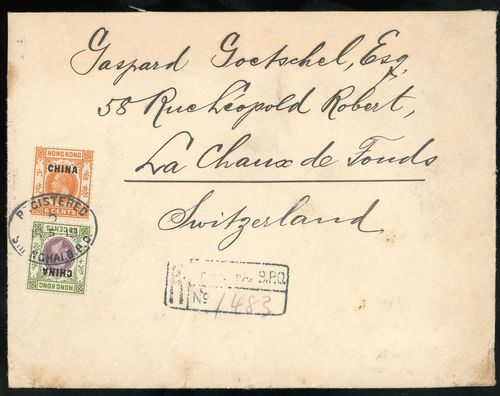 Gaspard Goetschel, Esq
58 Rue Léopold Robert,
La Chaux de Fonds
Switzerland
HONG KONG
CHINA
6 CENTS
REGISTERED
CENTS
CHINA
HONG KONG
B.P.O.
No 1483